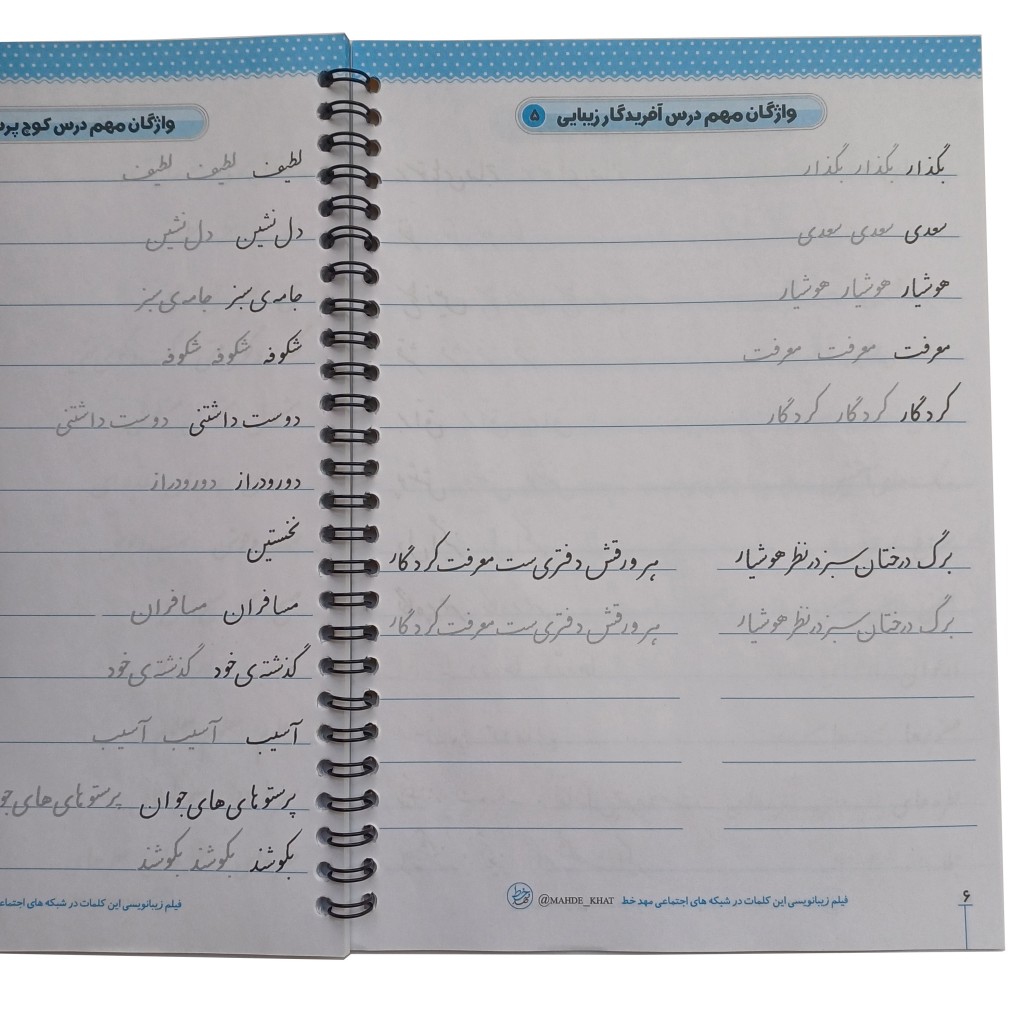 واژگان مهم درس آفریدگار زیبایی ۵
بگذار بگذار بگذار
سعدی سعدی سعدی
هوشیار هوشیار هوشیار
معرفت معرفت معرفت
کردگار کردگار کردگار
برگ درختان سبز در نظر هوشیار هر ورقش دفتری ست معرفت کردگار
برگ درختان سبز در نظر هوشیار هر ورقش دفتری ست معرفت کردگار
فیلم زیبانویسی این کلمات در شبکه های اجتماعی مهد خط @MAHDE_KHAT
۶
واژگان مهم درس کوچ
لطیف لطیف لطیف
دل نشین دل نشین
جامه ی سبز جامه ی سبز
شکوفه شکوفه شکوفه
دوست داشتنی دوست داشتنی
دورودراز دورودراز
نخستین
مسافران مسافران
گذشته ی خود گذشته ی خود
آسیب آسیب آسیب
پرستوهای های جوان پرستوهای های
بکوشند بکوشند بکوشند
فیلم زیبانویسی این کلمات در شبکه های